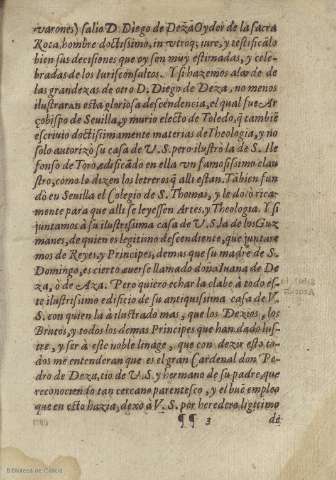 varones) salio D. Diego de Deza Oydor de la sacra
Rota, hombre doctissimo, in vtroq; iure, y testificālo
bien sus decisiones que oy son muy estimadas, y cele-
bradas de los Iurisconsultos. Y si hazemos alarde de
las grandezas de otro D. Diego de Deza, no menos
ilustraran esta gloriosa descendencia, el qual fue Ar-
çobispo de Sevilla, y murio electo de Toledo, q̄ tambiē
escriuio doctissimamente materias de Theologia, y no
solo autorizò su casa de V.S. pero ilustrò la de S. Ile
fonso de Toro, edificādo en ella vn famosissimo clau
stro, como lo dizen los letreros q̄ alli estan. Tābien fun
dò en Seuilla el Colegio de S. Thomas, y le dotò rica-
mente para que alli se leyessen Artes, y Theologia. Y si
juntamos à su ilustrissima casa de V.S. la de los Guz
manes, de quien es legitimo descendiente, que jūntare
mos de Reyes, y Principes, demas que su madre de S.
Domingo, es cierto auerse llamado doña Iuana de De
za, ò de Aza. Pero quiero echar la clabe à todo es-
te ilustrissimo edificio de su antiquissima casa de V.
S. con quien la à ilustrado mas, que los Dezios, los
Brutos, y todos los demas Principes que han dado lus-
tre, y ser à este noble linage, que con dezir esto to-
dos me entenderan que es el gran Cardenal don Pe-
dro de Deza, tio de V.S. y hermano de su padre, que
reconociendo tan cercano parentesco, y el buē empleo
que en esto hazia, dexò à V.S. por heredero ligitimo
¶¶ 3 de
Biblioteca de Galicia